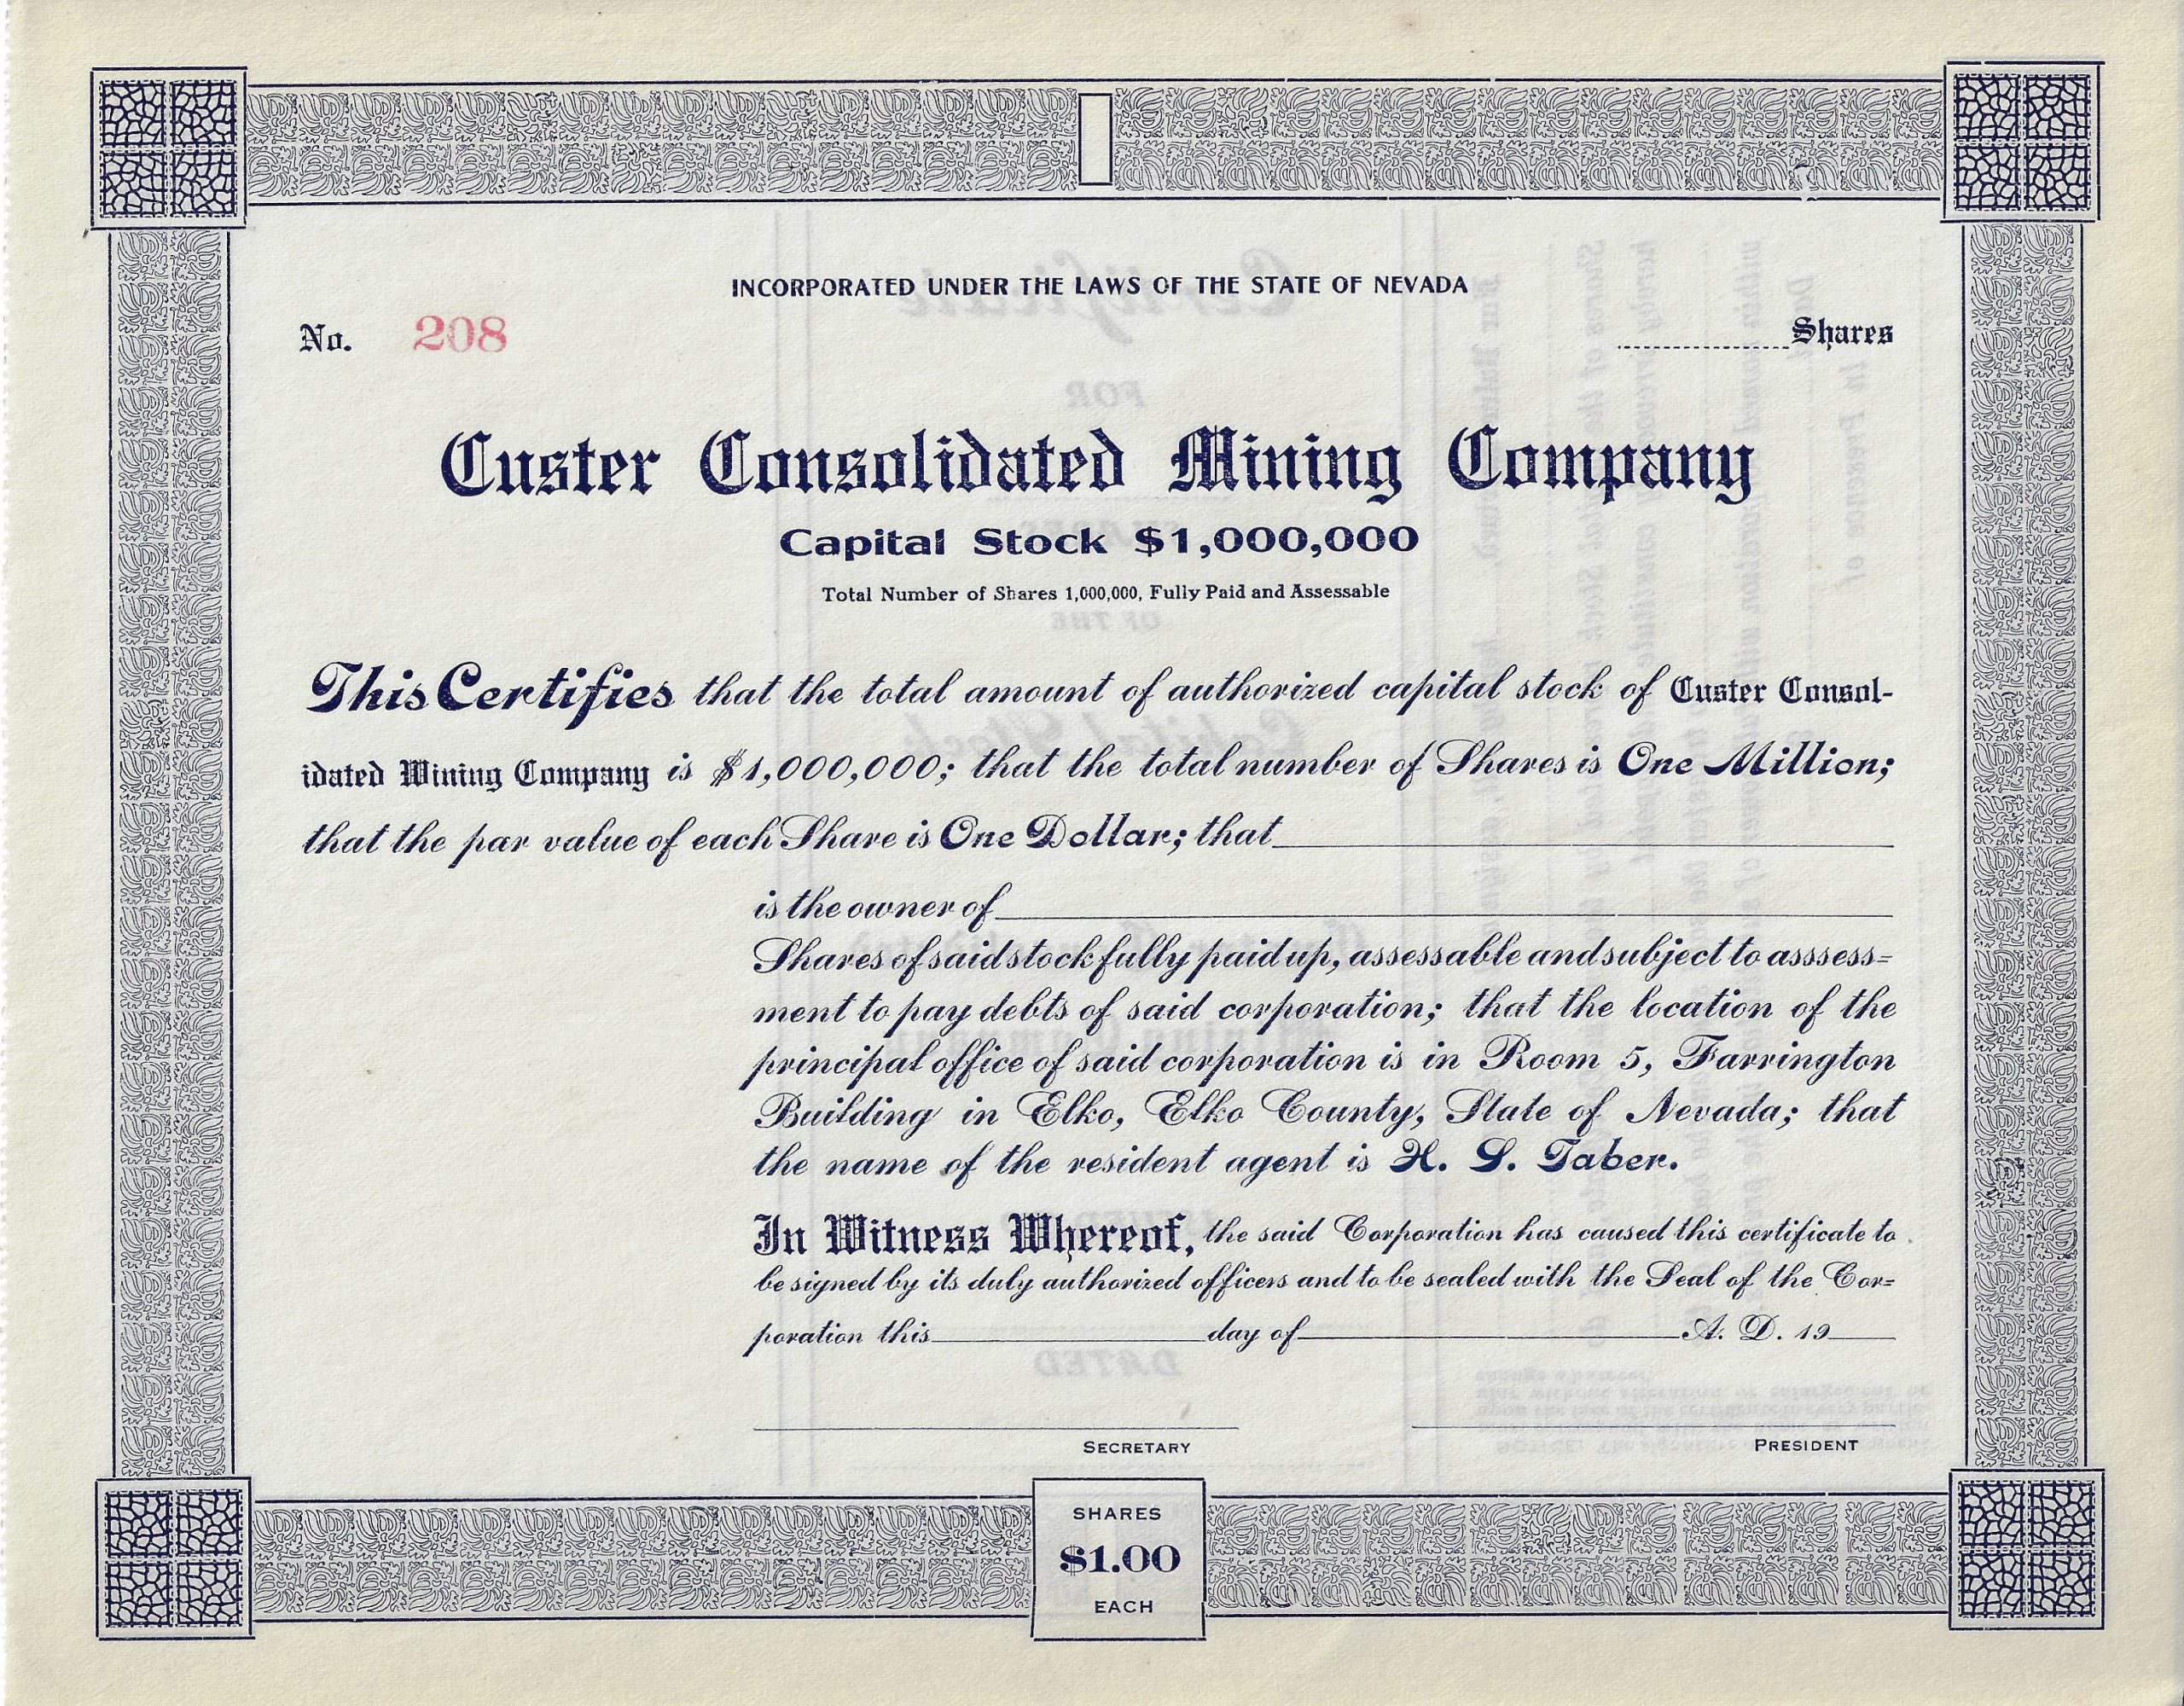 INCORPORATED UNDER THE LAWS OF THE STATE OF NEVADA
No. 208 Shares
Custer Consolidated Mining Company
Capital Stock $1,000,000
Total Number of Shares 1,000,000, Fully Paid and Assessable
This Certifies that the total amount of authorized capital stock of Custer Consol-
idated Mining Company is $1,000,000; that the total number of Shares is One Million;
that the par value of each Share is One Dollar; that
is the owner of
Shares of said stock fully paid up, assessable and subject to asssess=
ment to pay debts of said corporation; that the location of the
principal office of said corporation is in Room 5, Farrington
Building in Elko, Elko County, State of Nevada; that
the name of the resident agent is H. S. Taber.
In Witness Whereof, the said Corporation has caused this certificate to
be signed by its duly authorized officers and to be sealed with the Seal of the Cor=
poration this day of A. D. 19
SECRETARY PRESIDENT
SHARES
$1.00
EACH